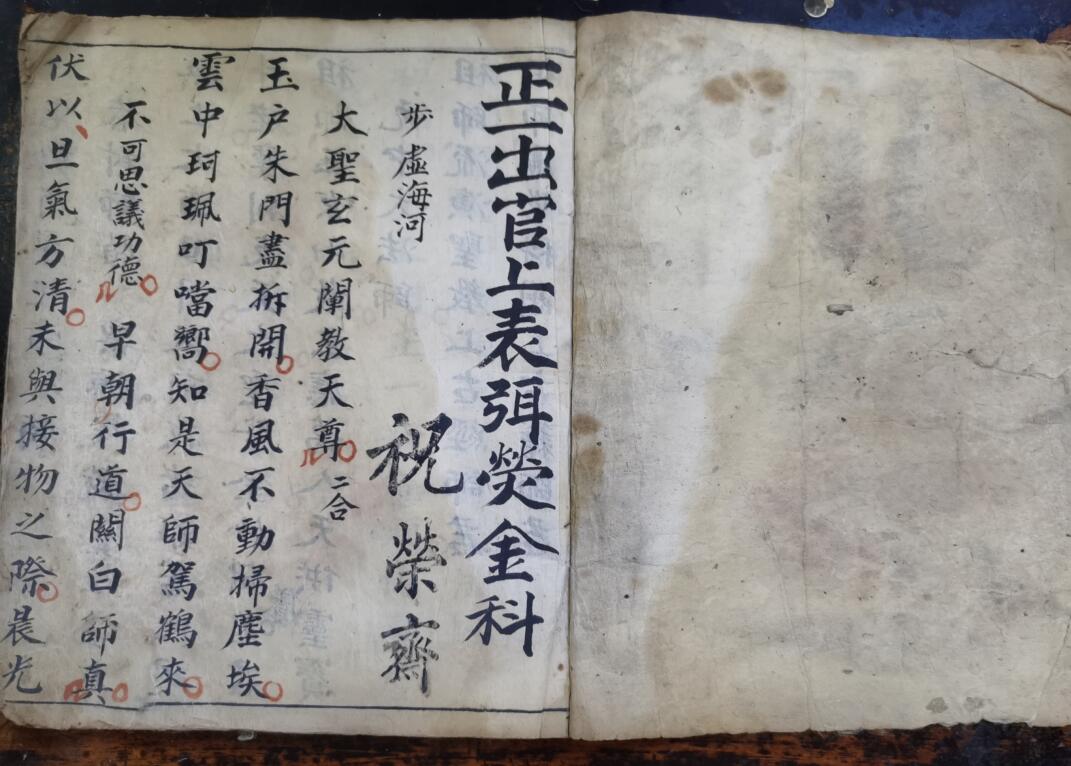 正一出官上表弭熒金科
步虛海河
祝榮齋
大聖玄元闡教天尊 二合
玉戶朱門盡拆開香風不動掃塵埃
雲中珂珮叮噹嚮知是天師駕鶴來
不可思議功德 早朝行道關白師真
伏以旦氣方清未與接物之際晨光